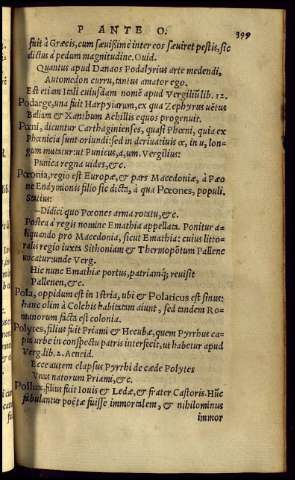 P ANTE O. 399
fuit à Græcis, cum sæuissime inter eos sæuiret pestis, sic
dictus à pedum magnitudine. Ouid.
Quantus apud Danaos Podalyrius arte medendi,
Automedon curru, tantus amator ego.
Est etiam Itali cuiusdam nomẽ apud Vergiliũ lib. 12.
Podarge, una fuit Harpyiarum, ex qua Zephyrus uẽtus
Balium & Xanthum Achillis equos progenuit.
Pœni, dicuntur Carthaginienses, quasi Phœni, quia ex
Phœnicia sunt oriundi: sed in deriuatiuis œ, in u, lon-
gum mutatur: ut Punicus, a, um. Vergilius:
Punica regna uides, &c.
Pœonia, regio est Europæ, & pars Macedoniæ, à Pæo
ne Endymionis filio sic dicta, à qua Pœones, populi.
Statius:
—Didici quo Pœones arma rotatu, &c.
Postea à regis nomine Emathia appellata. Ponitur a-
liquando pro Macedonia, sicut Emathia: cuius litto-
ralis regio iuxta Sithoniam & Thermopōtum Pallene
uocatur unde Verg.
Hic nunc Emathiæ portus, patriamq; reuisit
Pallenen, &c.
Pola, oppidum est in Istria, ubi & Polaticus est sinus:
hanc olim à Colchis habitatam aiunt, sed tandem Ro-
manorum facta est colonia.
Polytes, filius fuit Priami & Hecubæ, quem Pyrrhus ca-
pta urbe in conspectu patris interfecit, ut habetur apud
Verg. lib. 2. Aeneid.
Ecce autem elapsus Pyrrhi de cæde Polytes
Vnus natorum Priami, &c.
Pollux, filius fuit Iouis & Ledæ, & frater Castoris. Hũc
fabulantur poëtæ fuisse immortalem, & nihilominus
immor